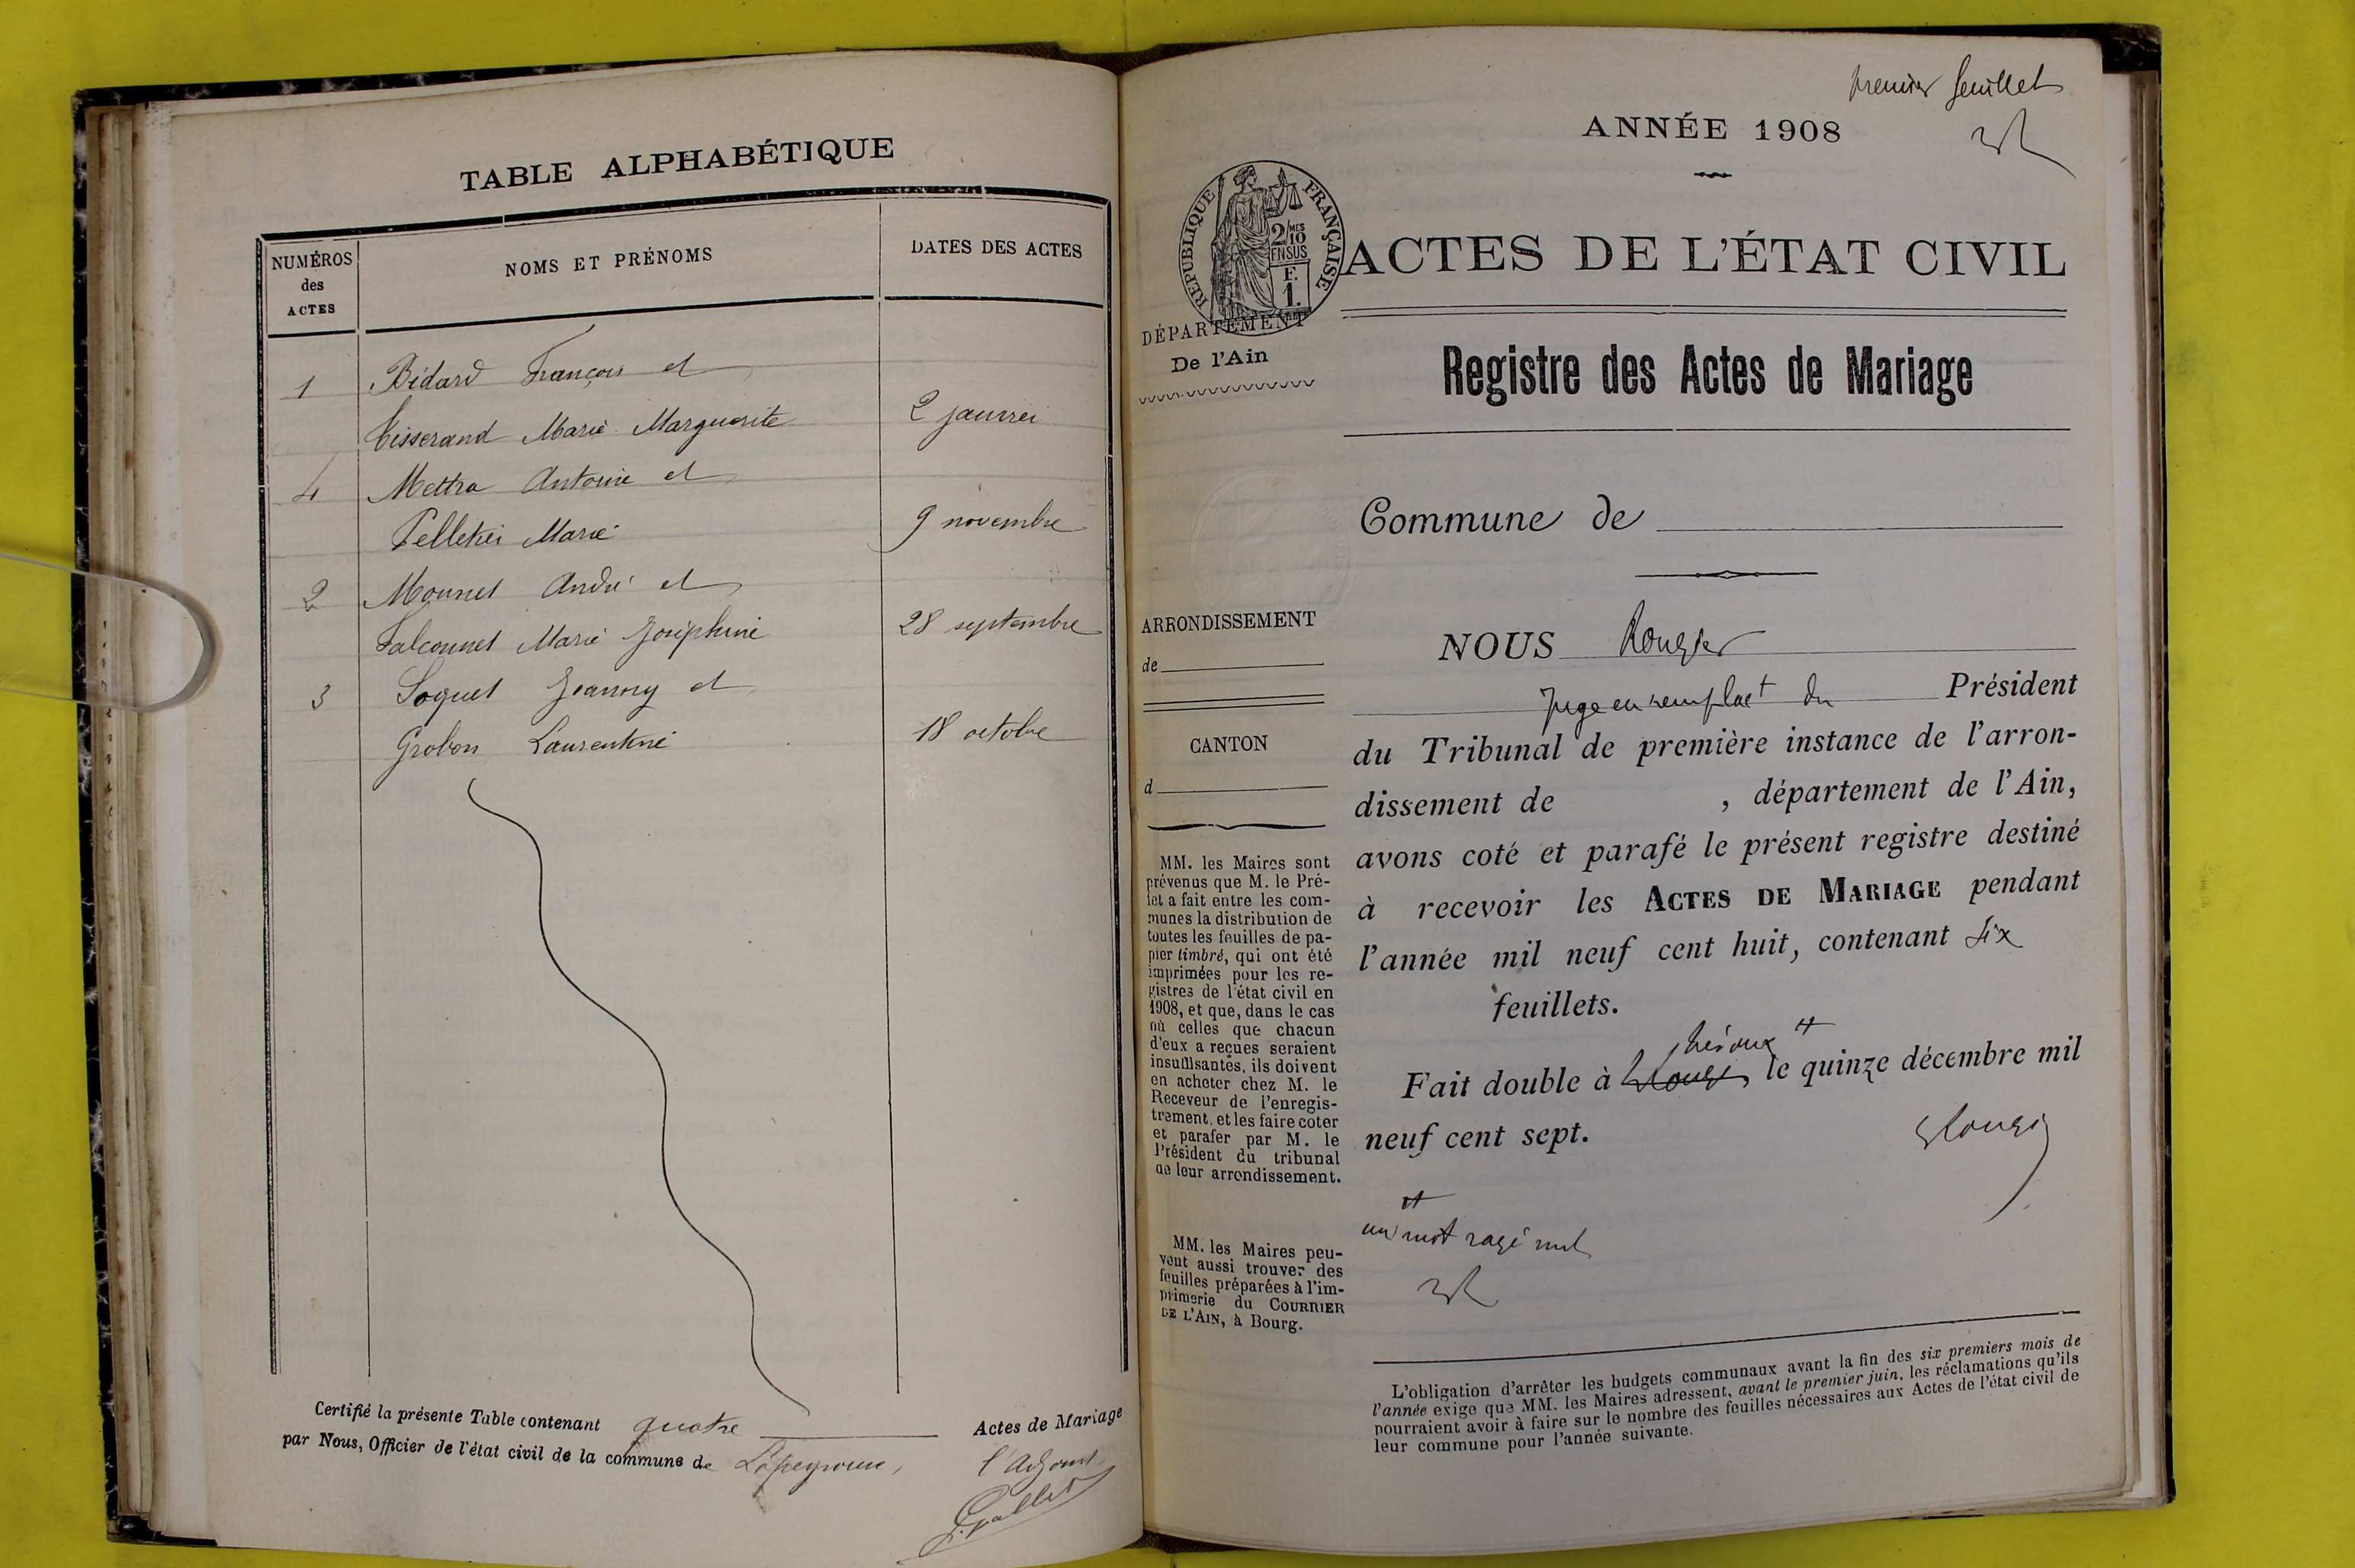 TABLE ALPHABÉTIQUE
NUMÉROS
des
ACTES
NOMS ET PRÉNOMS
DATES DES ACTES
1 Bédard François et
Tisserand Marie Marguerite 2 janvier
4 Mettra Antoine et
Pelletier Marie 9 novembre
2 Monnet André et
Falconnet Marie Joséphine 28 septembre
3 Soquet Jeanny et
Grobon Laurentine 18 octobre
Certifié la présente Table contenant quatre Actes de Mariage
par Nous, Officier de l'état civil de la commune de Lapeyrouse,
l'adjoint
premier feuillet
ANNÉE 1908
RÉPUBLIQUE FRANÇAISE
2/MES
10
EN SUS
F.
1.
ACTES DE L'ÉTAT CIVIL
DÉPARTEMENT
De l'Ain
Registre des Actes de Mariage
Commune de
ARRONDISSEMENT
de
CANTON
d
MM. les Maires sont
prévenus que M. le Pré-
fet a fait entre les com-
munes la distribution de
toutes les feuilles de pa-
pier timbré, qui ont été
imprimées pour les re-
gistres de l'état civil en
1908, et que, dans le cas
où celles que chacun
d'eux a reçues seraient
insuffisantes, ils doivent
en acheter chez M. le
Receveur de l'enregis-
trement, et les faire coter
et parafer par M. le
Président du tribunal
de leur arrondissement.
MM. les Maires peu-
vent aussi trouver des
feuilles préparées à l'im-
primerie du COURRIER
DE L'AIN, à Bourg.
NOUS Rougier
Juge en remplact du Président
du Tribunal de première instance de l'arron-
dissement de , département de l'Ain,
avons coté et parafé le présent registre destiné
à recevoir les ACTES DE MARIAGE pendant
l'année mil neuf cent huit, contenant six
feuillets.
Trévoux
Fait double à le quinze décembre mil
neuf cent sept.
Rougier
un mot rayé nul
L'obligation d'arrêter les budgets communaux avant la fin des six premiers mois de
l'année exige que MM. les Maires adressent, avant le premier juin, les réclamations qu'ils
pourraient avoir à faire sur le nombre des feuilles nécessaires aux Actes de l'état civil de
leur commune pour l'année suivante.